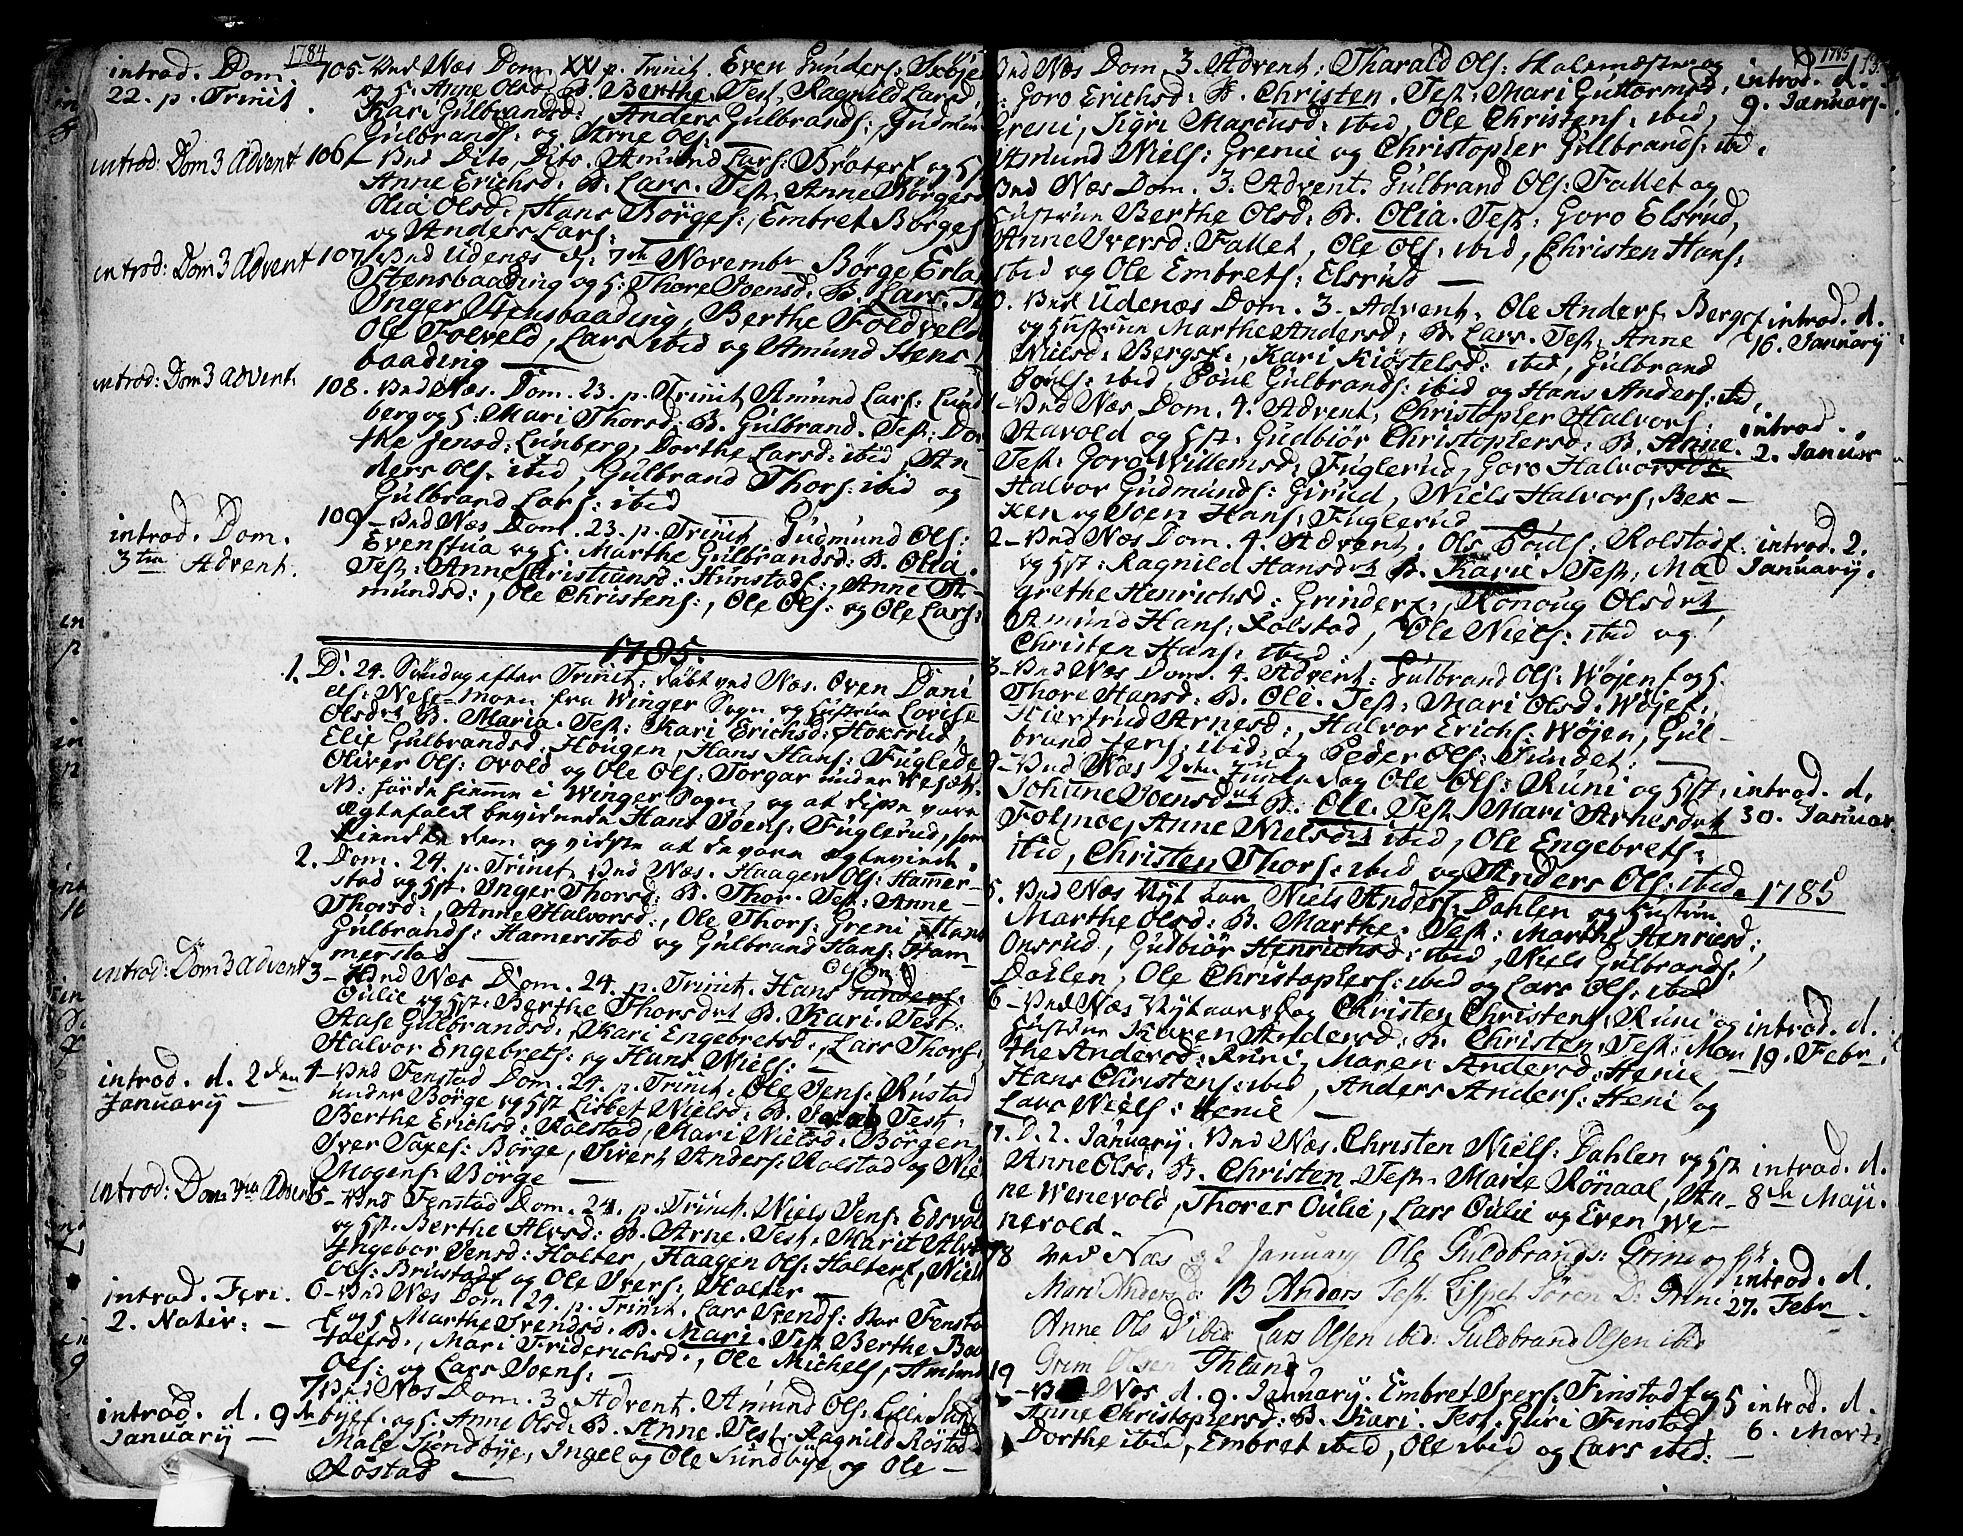 1784
introd. Dom.
22. p. Trinit.
105. Vnd Næs Dom XX p. Trinit. Even Gunders:
og H: Anne Olsd: B. Berthe. Test. Ragnild Larsd
Kari Gulbrandsd:, Anders Gulbrands:, Gudmun
Gulbrands: og Arne Ols:
introd: Dom 3 Advent
106. Vnd Dito, Dito. Amund Lars: Bröterf og Hst
Anne Erichsd. B. Lars. Test. Anne Börgesd
Olia Olsd., Hans Börges:, Embret Börges
og Anders Lars:
introd: Dom 3 Advent
107. Vnd Udenæs d: 7de Novembr Börge Erla
Stensbaading og H: Thore Joensd: B. Lars. Te
Inger Stensbaading, Berthe Foldveld
Ole Folveld, Lars ibid og Amund Hens
baading
introd: Dom 3 Advent.
108. Vnd Næs. Dom. 23. p. Trinit Amund Lars: Lund
berg og H: Mari Thorsd: B. Gulbrand. Test: Dor
the Jensd: Lunberg, Dorthe Larsd: ibid, An-
ders Ols: ibid, Gulbrand Thors: ibid og
Gulbrand Lars: ibid
introd. Dom.
3tia Advent.
109. Vnd Næs Dom. 23. p. Trinit Gudmund Ols:
Evenstua og H. Marthe Gulbrandsd: B. Olia.
Test: Anne Christiansd: Hunstadf:, Anne A-
mundsd:, Ole Christens:, Ole Ols: og Ole Lars:
1785.
1. D: 24. Söndag efter Trinit: döbt vnd Næs. Oven Dani
els: fra Winger Sogn og Hustrue Lovise
Olsdr B. Maria. Test: Kari Erichsd: Hoksrud,
Elie Gulbrandsd: Hougen, Hans Hans: Fuglerud
Oliver Ols: Ovold og Ole Ols: Torgar under
hiemme i Winger Sogn, og at disse vare
ægtefolk bevidnede Hans Joens: Fuglerud, som
kiendte dem og vidste at de vare ægteviede.
2. Dom. 24. p. Trinit, Vnd Næs. Haagen Ols: Hamer-
stad og Hst. Inger Thorsd: B. Thor. Test: Anne
Thorsd:, Anne Halvorsd:, Ole Thors: Greni, Hans
Gulbrands: Hamerstad og Gulbrand Hans: Ham-
merstad
introd: Dom 3 Advent
3 - Vnd Næs Dom. 24. p. Trinit. Hans Gunders:
Oulie og Hst: Berthe Thorsdr B. Kari. Test:
Aase Gulbrandsd:, Kari Engebretsd:, Lars Thors:
Halvor Engebrets: og Hans Niels:
introd. d. 2den
January
4 - Vnd Fenstad Dom. 24. p. Trinit. Ole Jens: Rustad
under Börge og Hst Lisbet Nielsd: B. Jacob Test:
Berthe Erichsd: Rolstad, Mari Nielsd: Börgen,
Iver Börge, Sivert Anders: Rolstad og Nie
Mogens: Börge
introd: Dom 3tia Advent
5 - Vnd Fenstad Dom. 24. p. Trinit. Niels Jens:
og Hst. Berthe Alvsd: B. Arne. Test. Marit Alvs
Ingebor Jensd: Holter, Haagen Ols: Holterf, Niels
Ols: Brustadf og Ole Ivers: Holter
introd. Feri.
2. Nativ:
6 - Vnd Næs Dom 24. p. Trinit. Lars Svends: Fensta
f og H Marthe Svendsd: B. Mari. Test Berthe
Mari Friderichsd:, Ole Michels, Amund
Ols: og Lars Joens:
introd. d. 9de
January
7. Vnd Næs Dom. 3. Advent. Amund Ols: Lille
byef. og H. Anne Olsd: B. Anne. Test. Ragnild Röstad
Male Siondbye, Ingel og Ole Sundbye og Ole
Röstad

1785
Vnd Næs Dom 3. Advent. Tharald Ols: og
Goro Erichsd: B. Christen. Test: Mari Guttormsd,
Greni, Sigri Marcusd: ibid, Ole Christens: ibid,
Amund Niels: Grenie og Christopher Gulbrands: ibid.
introd. d.
9. January.
Vnd Næs Dom. 3. Advent. Gulbrand Ols: Fallet og
Hustrue Berthe Olsd: B. Olia. Test: Goro Elsrud,
Anne Iversd: Fallet, Ole Ols: ibid, Christen Hans:
ibid og Ole Embrets: Elsrud
0. Vnd Udenæs Dom. 3. Advent. Ole Anders Bergsf
og Hustrue Marthe Andersd: B. Lars. Test: Anne
Nielsd: Bergsf:, Kari Kiöstelsd: ibid, Gulbrand
Pouls: ibid, Poul Gulbrands: ibid og Hans Anders: ibid,
introd. d.
16. January
1 - Vnd Næs Dom. 4. Advent, Christopher Halvors:
Aarvold og Hst. Gudbiör Christophersd: B. Anne.
Test: Goro Willemsd: Fuglerud, Goro Halvorsdr
Halvor Gudmunds: Girud, Niels Halvors, Bek-
ken og Joen Hans: Fuglerud
introd.
2. Januar
2 - Vnd Næs Dom. 4. Advent, Ole Pouls: Rolstadf.
og Hst: Ragnild Hansdr B. Karie. Test: Mad
grethe Henrichsd: Grinderf., Ronoug Olsdr
Amund Hans: Rolstad, Ole Niels: ibid og
Christen Hans: ibid
introd. 2.
January.
3 - Vnd Næs Dom. 4. Advent: Gulbrand Ols: Wöjenf og H.
Thore Hansd: B. Ole. Test: Mari Olsd: Wöjef.,
Kiersrud Arnesd:, Halvor Erichs: Wöjen, Gul-
brand Jens: ibid og Peder Ols: Sundet:
Vnd Næs 2den Juledag Ole Ols: Runi og Hst,
Johane Joensdr B. Ole. Test: Mari Arnesdr
Folmoe, Anne Nielsdr ibid, Ole Engebrets:
ibid, Christen Thors: ibid og Anders Ols: ibid
introd. d.
30. Januar
1785
5. Vnd Næs Nyt aar Niels Anders: Dahlen og Hustrue
Marthe Olsd: B. Marthe. Test: Marthe Henricsd:
Onsrud, Gudbiör Henrichsd: ibid, Niels Gulbrands:
Dahlen, Ole Christophers: ibid og Lars Ols: ibid
6 - Vnd Næs Nytaarsdag Christen Christens: Runi og
Hustrue Karen Andersd: B. Christen. Test: Mar
the Andersd: Runi, Maren Andersd: Henie,
Hans Christens: ibid, Anders Anders: Heni og
Lars Niels: Henie
introd. d.
19. Febr.
17. D. 2. January. Vnd Næs. Christen Niels: Dahlen og Hst
Anne Olsd: B. Christen. Test. Marie Rönaal, An-
ne Wenevold, Thorer Oulie, Lars Oulie og Even We-
nevold.
introd. d.
8de Maji.
18 Vnd Næs d 2 January Ole Guldbrands: Grini og Hst
Mari Andersd: B Anders Test: Lispet Sören D: Grini
Anne Ols D ibid: Lars Olsen ibid: Guldbrand Olsen ibid
Grim Olsen Ihland
introd. d.
27. Febr.
19 - Vnd Næs d. 9. January. Embret Ivers. Finstadf og H
Anne Christophersd: B. Kari. Test: Guri Finstad,
Dorthe ibid, Embret ibid, Ole ibid og Lars ibid:
introd. d.
6. Marti